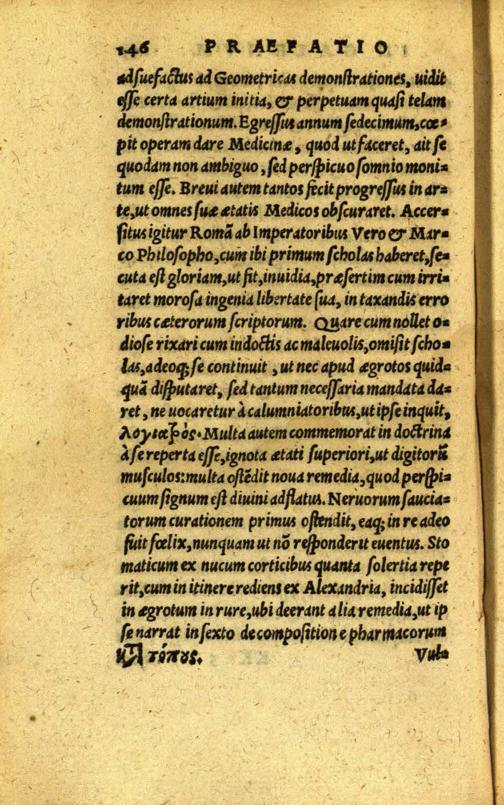 146 PRÆFATIO
adſuefactus ad Geometricas demonſtrationes, uidit
eſſe certa artium initia, & perpetuam quaſi telam
demonſtrationum. Egreſſus annum ſedecimum, cœ=
pit operam dare Medicinæ, quod ut faceret, ait ſe
quodam non ambiguo, ſed perſpicuo ſomnio moni=
tum eſſe. Breui autem tantos fecit progreſſus in ar=
te, ut omnes ſuæ ætatis Medicos obſcuraret. Accer=
ſitus igitur Romã ab Imperatoribus Vero & Mar=
co Philoſopho, cum ibi primum ſcholas haberet, ſe=
cuta eſt gloriam, ut fit, inuidia, præſertim cum irri=
taret moroſa ingenia libertate ſua, in taxandis erro
ribus cæterorum ſcriptorum. Quare cum nollet o=
dioſe rixari cum indoctis ac maleuolis, omiſit ſcho=
las, adeoq; ſe continuit, ut nec apud ægrotos quid=
quã diſputaret, ſed tantum neceſſaria mandata da=
ret, ne uocaretur à calumniatoribus, ut ipſe inquit,
λογιατρός. Multa autem commemorat in doctrina
à ſe reperta eſſe, ignota ætati ſuperiori, ut digitorũ
muſculos: multa oſtẽdit noua remedia, quod perſpi=
cuum ſignum eſt diuini adflatus. Neruorum ſaucia=
torum curationem primus oſtendit, eaq; in re adeo
fuit fœlix, nunquam ut nõ reſponderit euentus. Sto
maticum ex nucum corticibus quanta ſolertia repe
rit, cum in itinere rediens ex Alexandria, incidiſſet
in ægrotum in rure, ubi deerant alia remedia, ut ip
ſe narrat in ſexto de compoſitione pharmacorum
κατὰ τόπους. Vul=